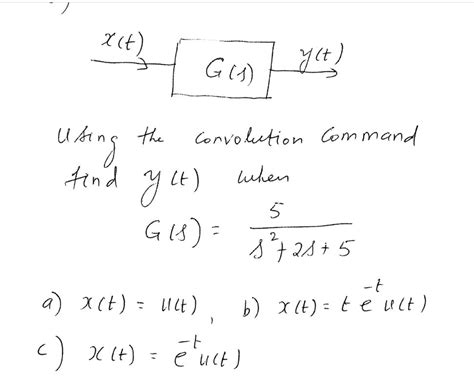 x(t) G(s) y(t)
Using the convolution command
find y(t) when
G(s) = 5 / (s² + 2s + 5)
a) x(t) = u(t), b) x(t) = t e^-t u(t)
c) x(t) = e^-t u(t)